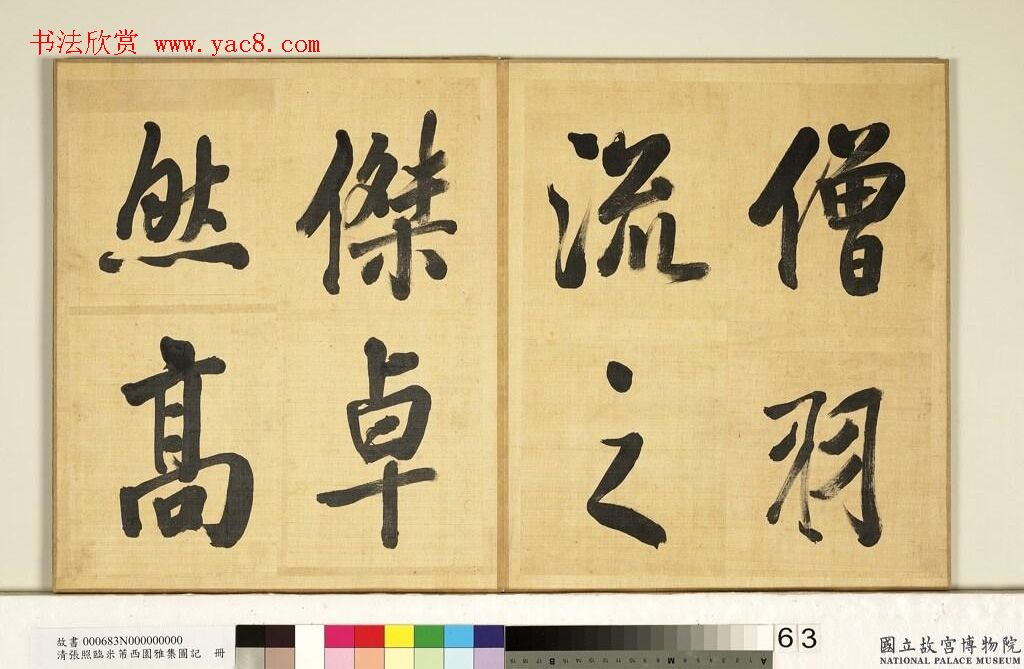 书法欣赏 www.yac8.com
僧羽
流之
傑卓
然高
故書 000683N000000000
清張照臨米芾西園雅集圖記 冊
63
國立故宮博物院
NATIONAL PALACE MUSEUM